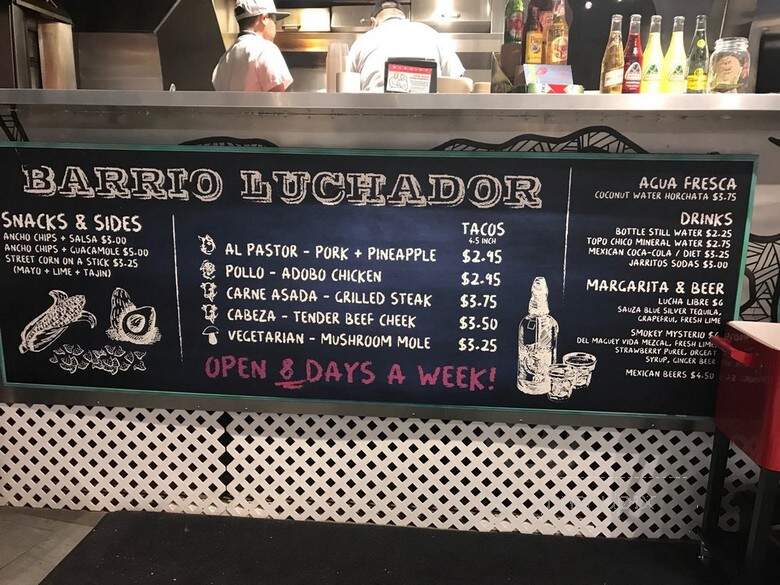 BARRIO LUCHADOR
SNACKS & SIDES
ANCHO CHIPS + SALSA $3.00
ANCHO CHIPS + GUACAMOLE $5.00
STREET CORN ON A STICK $3.25
(MAYO + LIME + TAJIN)
TACOS
4.5 INCH
AL PASTOR - PORK + PINEAPPLE $2.95
POLLO - ADOBO CHICKEN $2.95
CARNE ASADA - GRILLED STEAK $3.75
CABEZA - TENDER BEEF CHEEK $3.50
VEGETARIAN - MUSHROOM MOLE $3.25
OPEN 8 DAYS A WEEK!
AGUA FRESCA
COCONUT WATER HORCHATA $3.75
DRINKS
BOTTLE STILL WATER $2.25
TOPO CHICO MINERAL WATER $2.75
MEXICAN COCA-COLA / DIET $3.25
JARRITOS SODAS $3.00
MARGARITA & BEER
LUCHA LIBRE $6
SAUZA BLUE SILVER TEQUILA,
GRAPEFRUI, FRESH LIME
SMOKEY MYSTERIO
DEL MAGUEY VIDA MEZCAL, FRESH LIME
STRAWBERRY PUREE, ORGEAT
SYRUP, GINGER BEER
MEXICAN BEERS $4.50